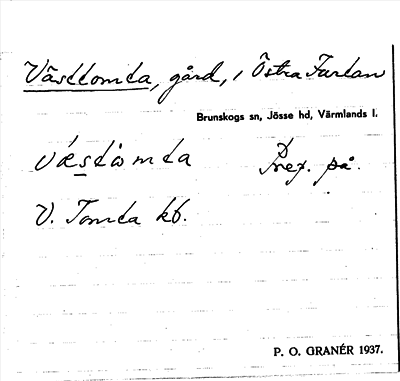 Västtomta, gård, i Östra Furtan
Brunskogs sn, Jösse hd, Värmlands l.
Prep. på.
V. Tomta kb.
P. O. GRANÉR 1937.